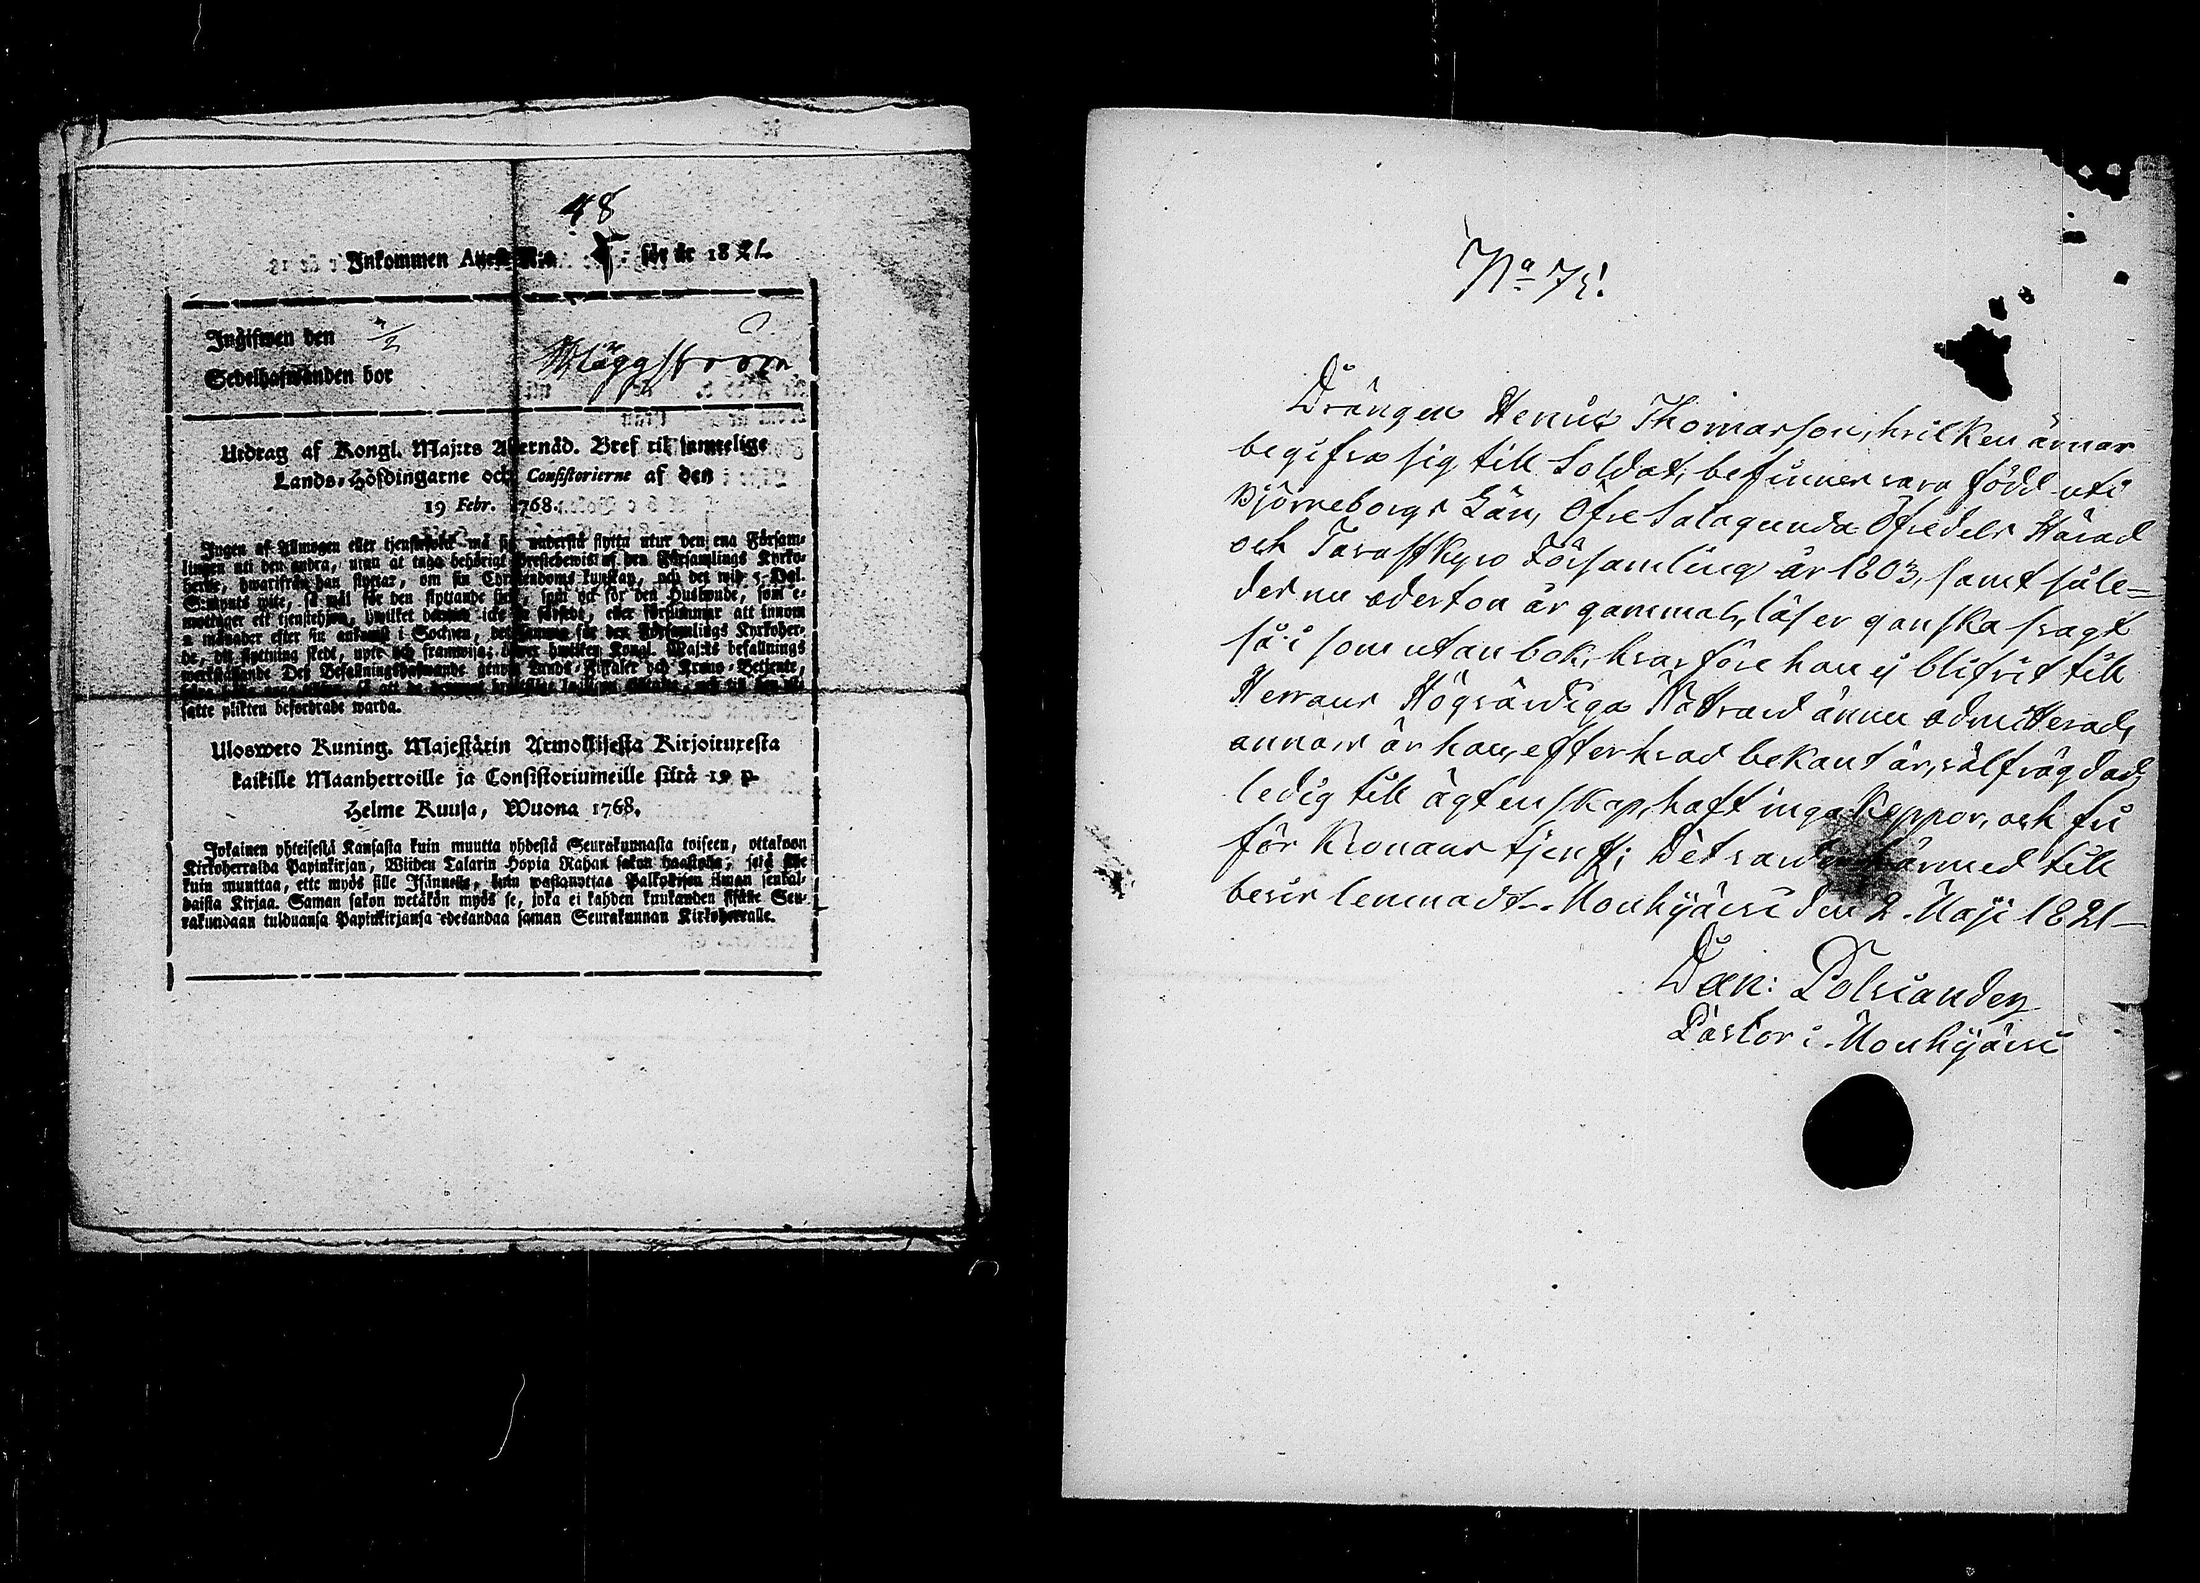 48
Inkommen Attest N:o för år 1821
Ingifwen den
Sedelhafwanden bor Häggström
Utdrag af Kongl. Maj:ts Allernåd. Bref til samtelige
Lands-Höfdingarne och Consistorierne af den
19 Febr. 1768.
Ingen af Allmogen eller tjenstefolk må sig understå flytta utur den ena Försam-
lingen uti den andra, utan at taga behörigt Prestebewis af den Församlings Kyrko-
herde, hwarifrån han flyttar, om sin Christendoms kunskap, och det wid 5 Dal.
S:mynts wite, så wäl för den flyttande sielf, som ock för den Husbonde, som e-
mottager ett tjenstehjon, hwilket detta icke så försedt, eller försummar att innom
2 månader efter sin ankomst i Socknen, det samma för den Församlings Kyrkoher-
de, dit flyttning skedt, upte och framwisa; öfwer hwilken Kongl. Maj:ts befallnings
werkställande Dess Befallningshafwande genom Lands-Fiskaler och Krono-Betjente,
satte plikten befordrade warda.
Ulosweto Kuning. Majestätin Armollisesta Kirjoituxesta
kaikille Maanherroille ja Consistoriumeille siitä 19 p.
Helme Kuusa, Wuona 1768.
Jokainen yhteisestä Kansasta kuin muutta yhdestä Seurakunnasta toiseen, ottakoon
Kirkoherralda Papinkirjan, Wiiden Talarin Hopia Rahan sakon haastolla, sekä sille
kuin muuttaa, ette myös sille Isännelle, kuin wastanottaa Palkolisen ilman senkal-
daista Kirjaa. Saman sakon wetäkön myös se, joka ei kahden kuukauden sisälle Seu-
rakundaan tulduansa Papinkirjansa edesandaa saman Seurakunnan Kirkoherralle.
No 75!
Drängen Henric Thomasson, hvilken ämnar
begifva sig till Soldat, befinnes vara född uti
Björneborgs Län, Öfre Satagunda Öfredels Härad
och Tavastkyro Församling år 1803, samt såle=
des nu aderton år gammal, läser ganska svagt
så i som utan bok, hvarföre han ej blifvit till
Herrans Högvärdiga Nattvard ännu admitterad,
annars är han, efter hvad bekant är, välfrägdad,
ledig till ägtenskap, haft inga Koppor, och fri
för Kronans tjenst; Det varder härmed till
bevis lemnadt. Mouhijärvi den 2 Maji 1821
Dan: Polviander
Pastor i Mouhijärvi